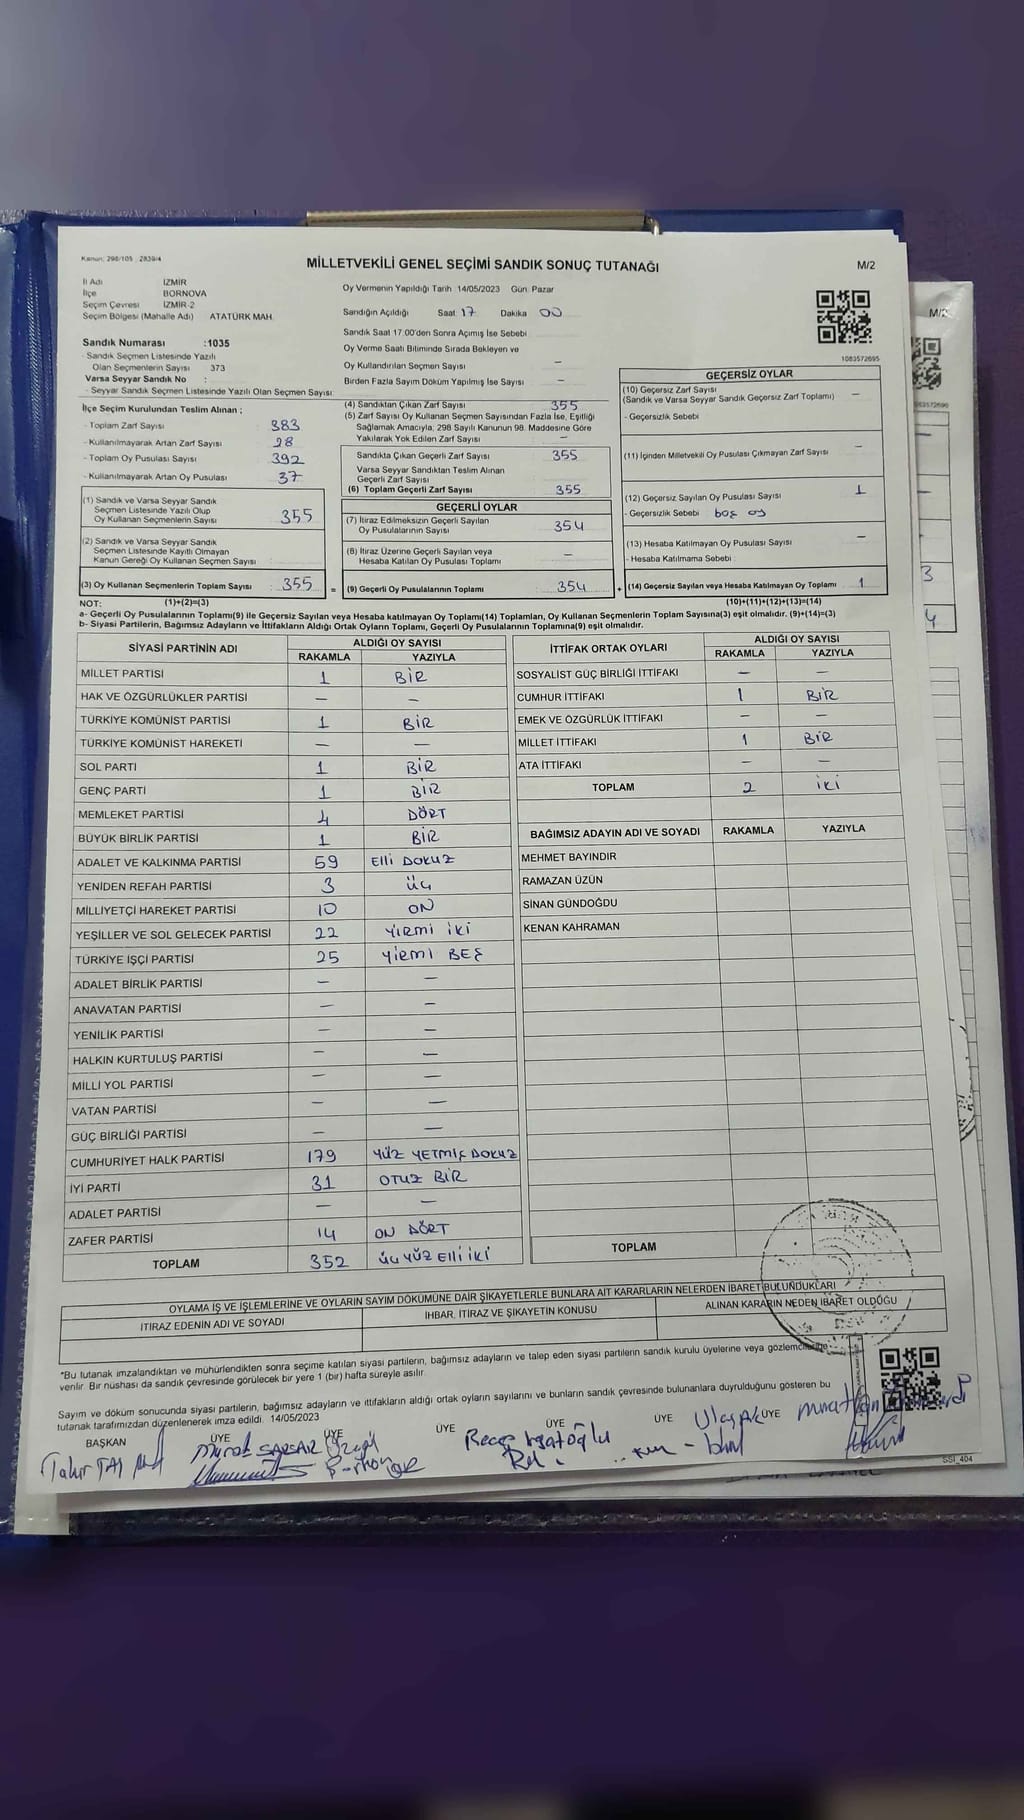 Kanun: 298/105 , 2839/4
MİLLETVEKİLİ GENEL SEÇİMİ SANDIK SONUÇ TUTANAĞI
M/2
İl Adı İZMİR
İlçe BORNOVA
Seçim Çevresi İZMİR-2
Seçim Bölgesi (Mahalle Adı) ATATÜRK MAH.
Sandık Numarası :1035
- Sandık Seçmen Listesinde Yazılı
Olan Seçmenlerin Sayısı 373
Varsa Seyyar Sandık No :
- Seyyar Sandık Seçmen Listesinde Yazılı Olan Seçmen Sayısı:
Oy Vermenin Yapıldığı Tarih 14/05/2023 Gün: Pazar
Sandığın Açıldığı Saat 17 Dakika 00
Sandık Saat 17.00'den Sonra Açılmış İse Sebebi
Oy Verme Saati Bitiminde Sırada Bekleyen ve
Oy Kullandırılan Seçmen Sayısı –
Birden Fazla Sayım Döküm Yapılmış İse Sayısı –
1083572695
İlçe Seçim Kurulundan Teslim Alınan ;
- Toplam Zarf Sayısı 383
- Kullanılmayarak Artan Zarf Sayısı 28
- Toplam Oy Pusulası Sayısı 392
- Kullanılmayarak Artan Oy Pusulası 37
(1) Sandık ve Varsa Seyyar Sandık
Seçmen Listesinde Yazılı Olup
Oy Kullanan Seçmenlerin Sayısı 355
(2) Sandık ve Varsa Seyyar Sandık
Seçmen Listesinde Kayıtlı Olmayan
Kanun Gereği Oy Kullanan Seçmen Sayısı :
(3) Oy Kullanan Seçmenlerin Toplam Sayısı : 355 =
(1)+(2)=(3)
(4) Sandıktan Çıkan Zarf Sayısı 355
(5) Zarf Sayısı Oy Kullanan Seçmen Sayısından Fazla İse, Eşitliği
Sağlamak Amacıyla, 298 Sayılı Kanunun 98. Maddesine Göre
Yakılarak Yok Edilen Zarf Sayısı –
Sandıkta Çıkan Geçerli Zarf Sayısı 355
Varsa Seyyar Sandıktan Teslim Alınan
Geçerli Zarf Sayısı
(6) Toplam Geçerli Zarf Sayısı 355
GEÇERLİ OYLAR
(7) İtiraz Edilmeksizin Geçerli Sayılan
Oy Pusulalarının Sayısı 354
(8) İtiraz Üzerine Geçerli Sayılan veya
Hesaba Katılan Oy Pusulası Toplamı –
(9) Geçerli Oy Pusulalarının Toplamı 354 +
GEÇERSİZ OYLAR
(10) Geçersiz Zarf Sayısı
(Sandık ve Varsa Seyyar Sandık Geçersiz Zarf Toplamı) –
- Geçersizlik Sebebi
(11) İçinden Milletvekili Oy Pusulası Çıkmayan Zarf Sayısı –
(12) Geçersiz Sayılan Oy Pusulası Sayısı 1
- Geçersizlik Sebebi boş oy
(13) Hesaba Katılmayan Oy Pusulası Sayısı –
- Hesaba Katılmama Sebebi :
(14) Geçersiz Sayılan veya Hesaba Katılmayan Oy Toplamı 1
(10)+(11)+(12)+(13)=(14)
NOT:
a- Geçerli Oy Pusulalarının Toplamı(9) ile Geçersiz Sayılan veya Hesaba katılmayan Oy Toplamı(14) Toplamları, Oy Kullanan Seçmenlerin Toplam Sayısına(3) eşit olmalıdır. (9)+(14)=(3)
b- Siyasi Partilerin, Bağımsız Adayların ve İttifakların Aldığı Ortak Oyların Toplamı, Geçerli Oy Pusulalarının Toplamına(9) eşit olmalıdır.
SİYASİ PARTİNİN ADI ALDIĞI OY SAYISI
RAKAMLA YAZIYLA
MİLLET PARTİSİ 1 BİR
HAK VE ÖZGÜRLÜKLER PARTİSİ – –
TÜRKİYE KOMÜNİST PARTİSİ 1 BİR
TÜRKİYE KOMÜNİST HAREKETİ – –
SOL PARTİ 1 BİR
GENÇ PARTİ 1 BİR
MEMLEKET PARTİSİ 4 DÖRT
BÜYÜK BİRLİK PARTİSİ 1 BİR
ADALET VE KALKINMA PARTİSİ 59 Elli DOKUZ
YENİDEN REFAH PARTİSİ 3 ÜÇ
MİLLİYETÇİ HAREKET PARTİSİ 10 ON
YEŞİLLER VE SOL GELECEK PARTİSİ 22 YİRMİ İKİ
TÜRKİYE İŞÇİ PARTİSİ 25 YİRMİ BEŞ
ADALET BİRLİK PARTİSİ – –
ANAVATAN PARTİSİ – –
YENİLİK PARTİSİ – –
HALKIN KURTULUŞ PARTİSİ – –
MİLLİ YOL PARTİSİ – –
VATAN PARTİSİ – –
GÜÇ BİRLİĞİ PARTİSİ – –
CUMHURİYET HALK PARTİSİ 179 YÜZ YETMİŞ DOKUZ
İYİ PARTİ 31 OTUZ BİR
ADALET PARTİSİ – –
ZAFER PARTİSİ 14 ON DÖRT
TOPLAM 352 ÜÇ YÜZ Elli İKİ
İTTİFAK ORTAK OYLARI ALDIĞI OY SAYISI
RAKAMLA YAZIYLA
SOSYALİST GÜÇ BİRLİĞİ İTTİFAKI – –
CUMHUR İTTİFAKI 1 BİR
EMEK VE ÖZGÜRLÜK İTTİFAKI – –
MİLLET İTTİFAKI 1 BİR
ATA İTTİFAKI – –
TOPLAM 2 İKİ
BAĞIMSIZ ADAYIN ADI VE SOYADI RAKAMLA YAZIYLA
MEHMET BAYINDIR
RAMAZAN ÜZÜN
SİNAN GÜNDOĞDU
KENAN KAHRAMAN
TOPLAM
OYLAMA İŞ VE İŞLEMLERİNE VE OYLARIN SAYIM DÖKÜMÜNE DAİR ŞİKAYETLERLE BUNLARA AİT KARARLARIN NELERDEN İBARET BULUNDUKLARI
İTİRAZ EDENİN ADI VE SOYADI İHBAR, İTİRAZ VE ŞİKAYETİN KONUSU ALINAN KARARIN NEDEN İBARET OLDUĞU
*Bu tutanak imzalandıktan ve mühürlendikten sonra seçime katılan siyasi partilerin, bağımsız adayların ve talep eden siyasi partilerin sandık kurulu üyelerine veya gözlemcilerine
verilir. Bir nüshası da sandık çevresinde görülecek bir yere 1 (bir) hafta süreyle asılır.
Sayım ve döküm sonucunda siyasi partilerin, bağımsız adayların ve ittifakların aldığı ortak oyların sayılarını ve bunların sandık çevresinde bulunanlara duyrulduğunu gösteren bu
tutanak tarafımızdan düzenlenerek imza edildi. 14/05/2023
BAŞKAN ÜYE ÜYE ÜYE ÜYE ÜYE ÜYE
Tahir TAŞ
Murat
Recep
Ulaş
SSI_404